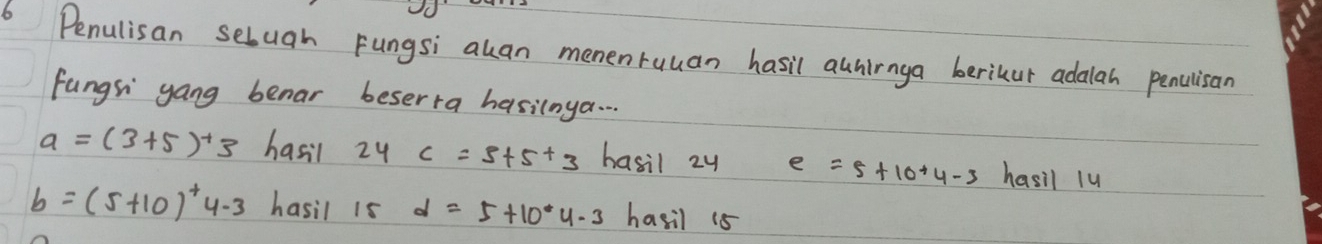 6 Penulisan sebuah Fungsi akan menentukan hasil akhirnya berikut adalah penulisan
fungsi yang benar beserta hasilnya...
a = (3+5)+3 hasil 24 c = 5+5+3 hasil 24 e = 5+10+4-3 hasil 14
b = (5+10)+4-3 hasil 15 d = 5+10*4-3 hasil 15